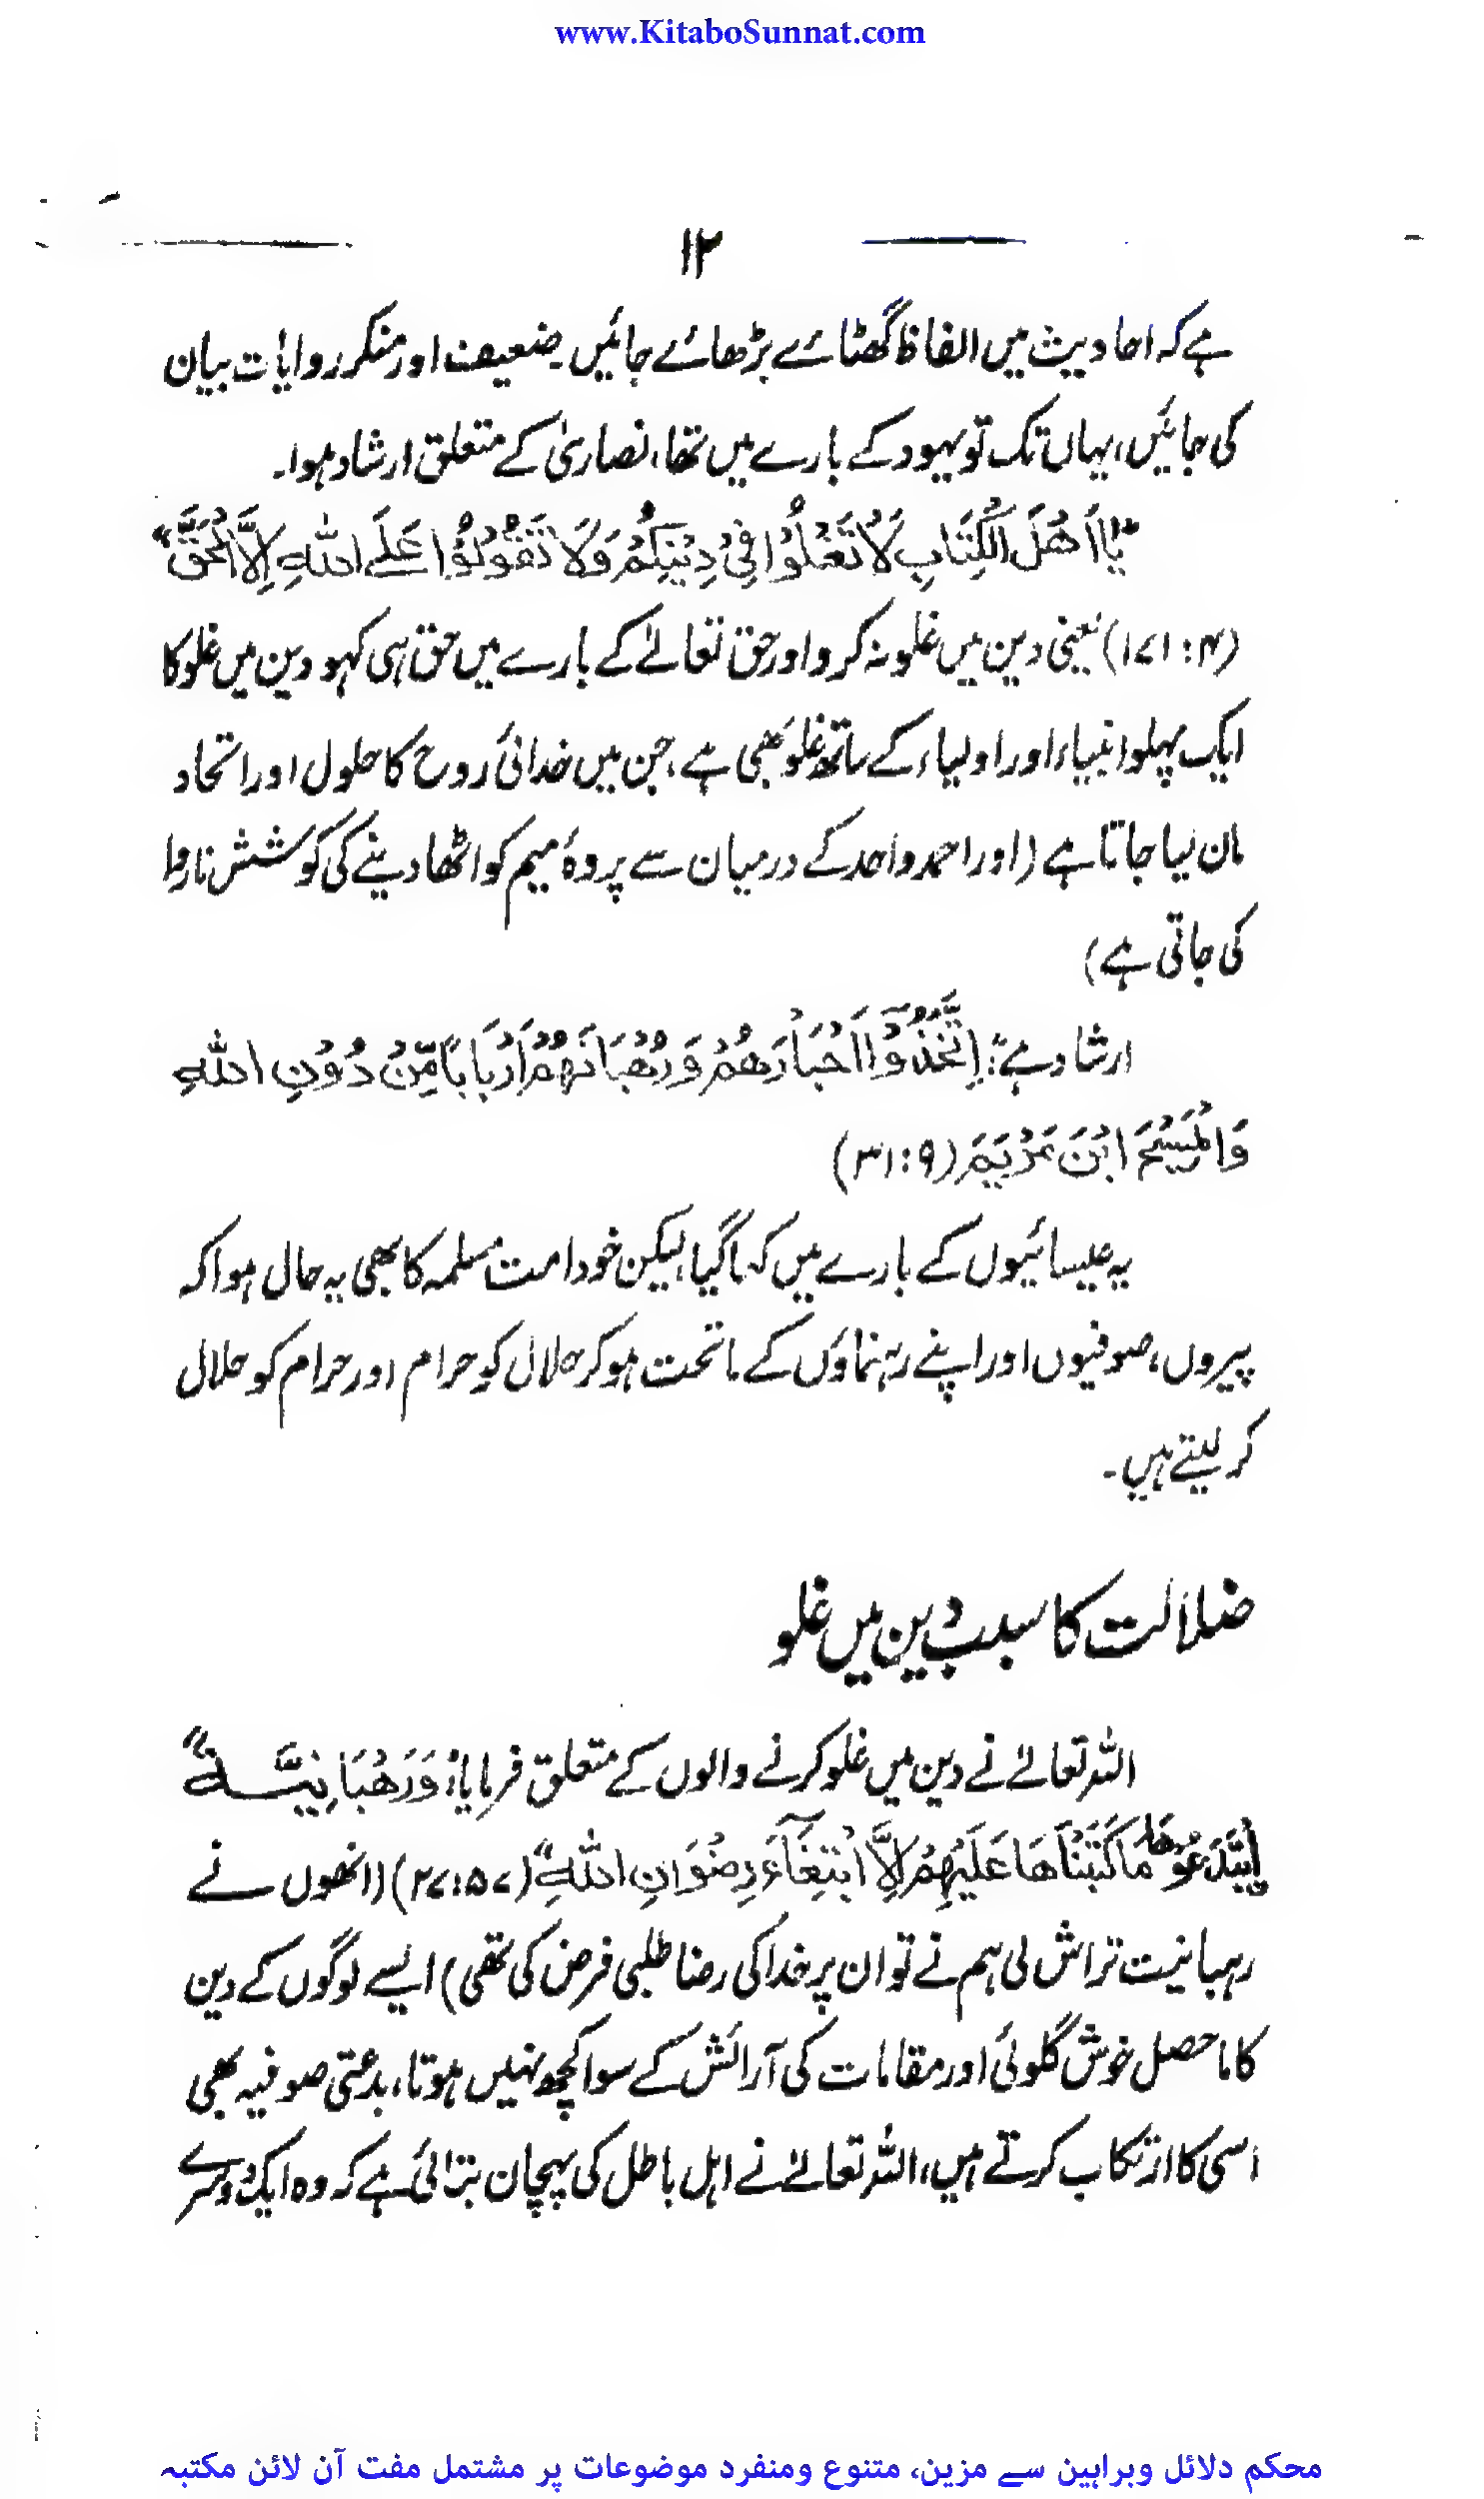 www.KitaboSunnat.com
۱۲
ہے کہ احادیث میں الفاظ گھٹائے بڑھائے جائیں۔ ضعیف اور منکر روایات بیان
کی جائیں، یہاں تک تو یہود کے بارے میں تھا، نصاریٰ کے متعلق ارشاد ہوا۔
"یَا اَهْلَ الْکِتَابِ لَا تَغْلُوْا فِیْ دِیْنِکُمْ وَلَا تَقُوْلُوْا عَلَے اللهِ اِلَّا الْحَقَّ"
(۴:۱۷۱) یعنی دین میں غلو نہ کرو اور حق تعالےٰ کے بارے میں حق ہی کہو دین میں غلو کا
ایک پہلو انبیاء اور اولیاء کے ساتھ غلو بھی ہے، جن میں خدائی روح کا حلول اور اتحاد
مان لیا جاتا ہے (اور احمد و احد کے درمیان سے پردۂ میم کو اٹھا دینے کی کوشش ناروا
کی جاتی ہے)
ارشاد ہے: "اِتَّخَذُوْٓا اَحْبَارَهُمْ وَرُهْبَانَهُمْ اَرْبَابًا مِّنْ دُوْنِ اللهِ
وَالْمَسِیْحَ ابْنَ مَرْیَمَ (۹:۳۱)
یہ عیسائیوں کے بارے میں کہا گیا، لیکن خود امت مسلمہ کا بھی یہ حال ہوا کہ
پیروں، صوفیوں اور اپنے رہنماؤں کے ماتحت ہو کر حلال کو حرام اور حرام کو حلال
کر لیتے ہیں۔
ضلالت کا سبب دین میں غلو
اللہ تعالےٰ نے دین میں غلو کرنے والوں کے متعلق فرمایا: "وَرَهْبَانِیَّةً
اِبْتَدَعُوْهَا مَا کَتَبْنَاهَا عَلَیْهِمْ اِلَّا ابْتِغَآءَ رِضْوَانِ اللهِ" (۵۷:۲۷) (انھوں نے
رہبانیت تراش لی ہم نے تو ان پر خدا کی رضا طلبی فرض کی تھی) ایسے لوگوں کے دین
کا ماحصل خوش گلوئی اور مقامات کی آرائش کے سوا کچھ نہیں ہوتا، بدعتی صوفیہ بھی
اسی کا ارتکاب کرتے ہیں، اللہ تعالےٰ نے اہل باطل کی پہچان بتائی ہے کہ وہ ایک دوسرے
محکم دلائل وبراہین سے مزین، متنوع ومنفرد موضوعات پر مشتمل مفت آن لائن مکتبہ